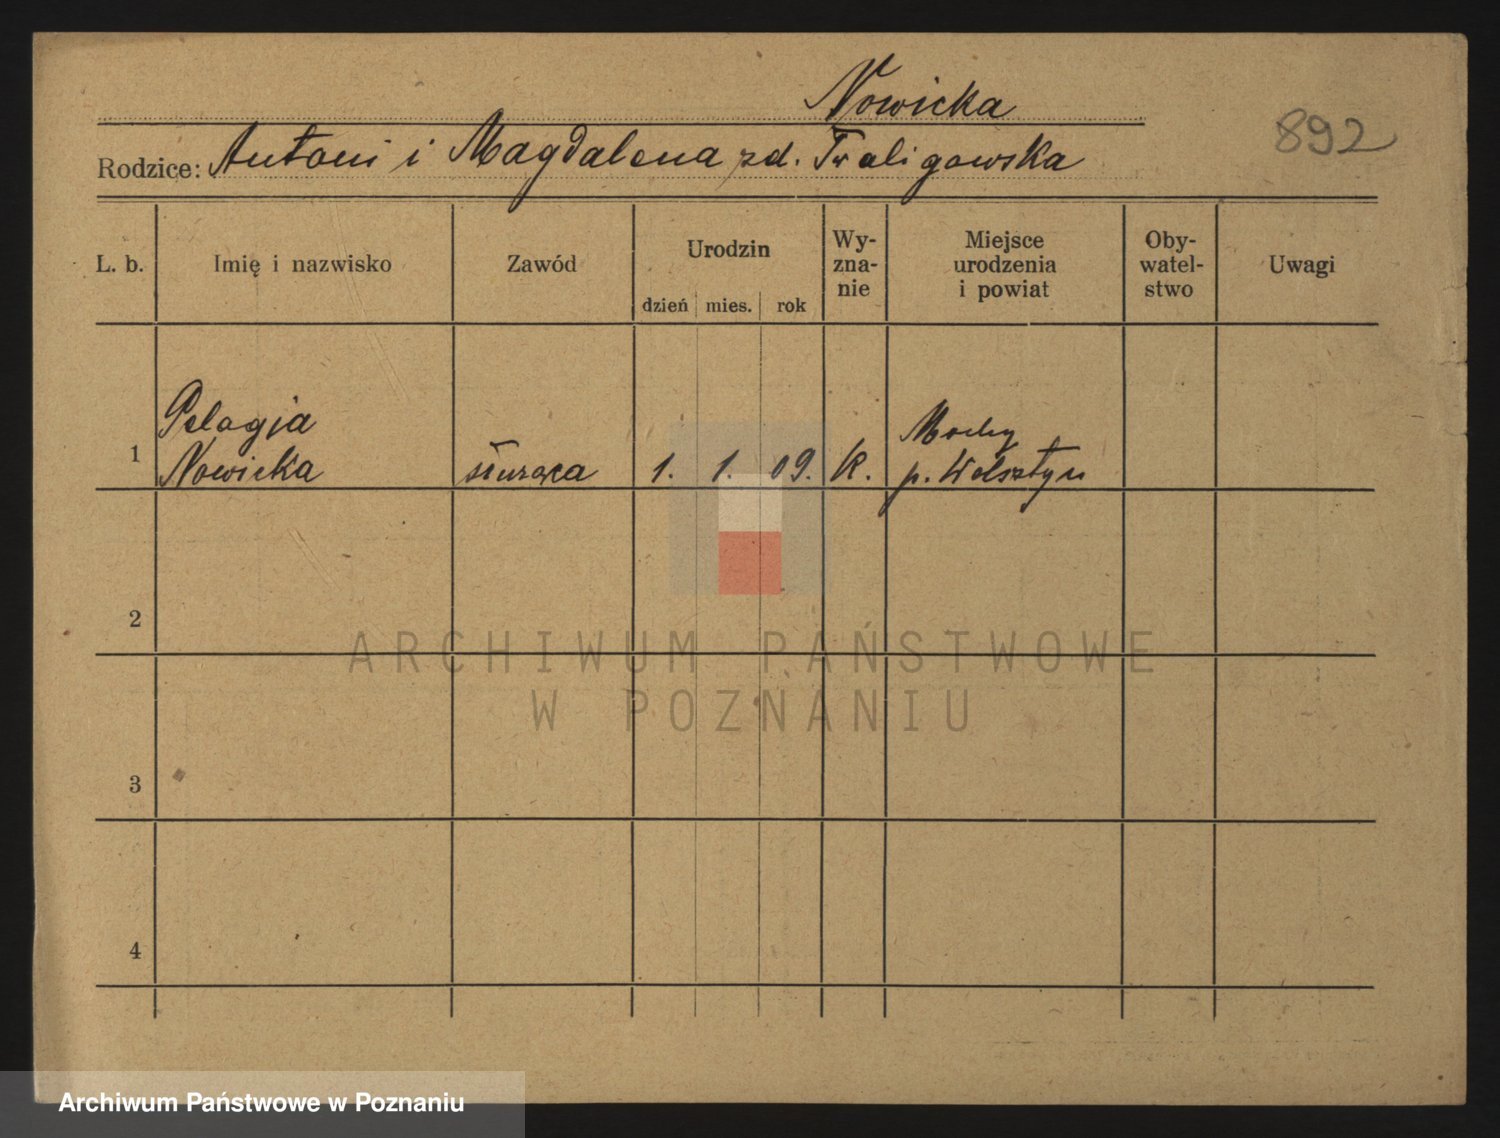 Nowicka
892
Rodzice: Antoni i Magdalena zd. Twaligowska
L. b. Imię i nazwisko Zawód Urodzin dzień mies. rok Wy-zna-nie Miejsce urodzenia i powiat Oby-watel-stwo Uwagi
Pelagja Mochy
1 Nowicka służąca 1. 1. 09. K. p. Wolsztyn
2
ARCHIWUM PAŃSTWOWE
W POZNANIU
3
4
Archiwum Państwowe w Poznaniu